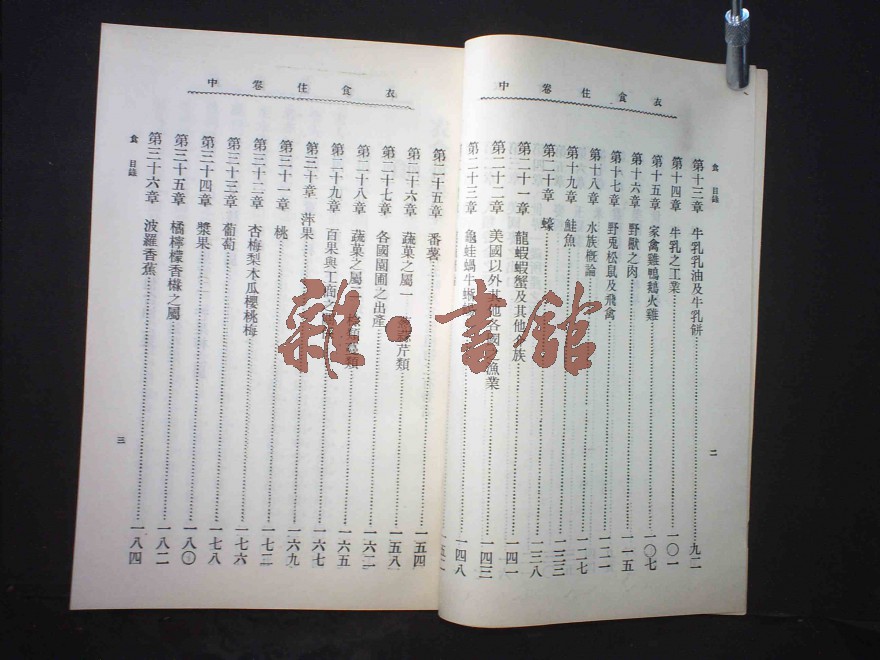 衣食住卷中
食 目錄 二
第十三章 牛乳乳油及牛乳餅 九二
第十四章 牛乳之工業 一〇一
第十五章 家禽雞鴨鵝火雞 一〇七
第十六章 野獸之肉 一一五
第十七章 野兎松鼠及飛禽 一二一
第十八章 水族概論 一二七
第十九章 鮭魚 一三三
第二十章 蠔 一三八
第二十一章 龍蝦蝦蟹及其他 族 一四一
第二十二章 美國以外其他各國之漁業 一四三
第二十三章 龜蛙蝸牛 一四八
衣食住卷中
第二十五章 番薯 一五四
第二十六章 蔬菓之屬一 芹類 一五八
第二十七章 各國園圃之出產 一六二
第二十八章 蔬菓之屬二 類 一六五
第二十九章 百果與工商之 一六七
第三十章 萍果 一六九
第三十一章 桃 一七三
第三十二章 杏梅梨木瓜櫻桃梅 一七六
第三十三章 葡萄 一七八
第三十四章 漿果 一八〇
第三十五章 橘檸檬香櫞之屬 一八二
第三十六章 波羅香蕉 一八四
食 目錄 三
雜·書館